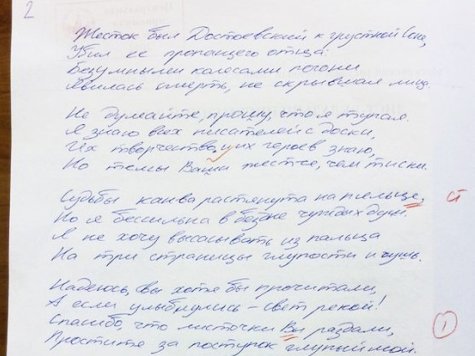 2
Жесток был Достоевский к грустной Соне,
Убил ее пропащего отца
Безумными колесами погони
Явилась смерть, не скрывшая лица.
Не думайте, прошу, что я тупая.
Я знаю всех писателей с доски,
Их творчество, их героев знаю,
Но темы Ваши жестче, чем тиски.
Судьбы канва растянута на пяльце,
Но я бессильна в бездне чужих душ.
Я не хочу высасывать из пальца
На три страницы глупости и чушь.
Надеюсь, Вы хотя бы прочитали,
А если улыбнулись – свет рекой!
Спасибо, что листочки Вы раздали,
Простите за поступок глупый мой.
1